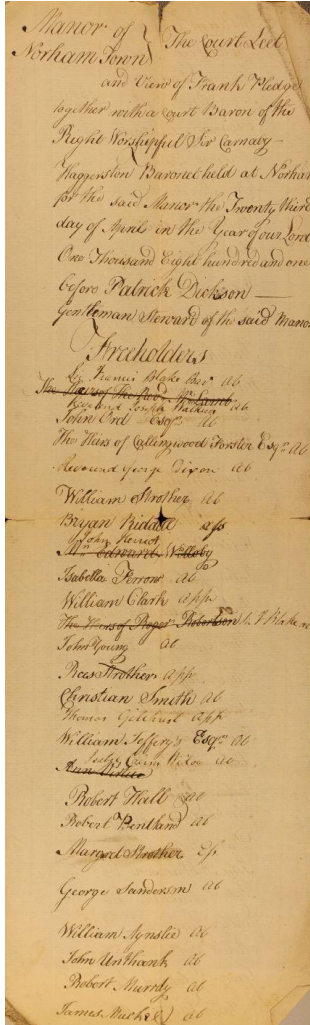 Manor of
Norham Town } The Court Leet
and View of Frank Pledge
together with a Court Baron of the
Right Worshipful Sir Carnaby
Haggerston Baronet held at Norham
for the said Manor the Twenty third
day of April in the Year of our Lord
One Thousand Eight hundred and one
before Patrick Dickson
Gentleman Steward of the said Manor
Freeholders
Sir Francis Blake Bart ab
The Heirs of The Revd Mr Laird
Reverend Joseph Watkins ab
John Ord Esqr ab
The Heirs of Collingwood Forster Esqr ab
Reverend George Dixon ab
William Strother ab
Bryan Riddell
John Herriot
Mr Edward Willoby
Isabella Ferrow ab
William Clark app
The Heirs of Roger Robertson Sr F Blake
John Young ab
Rees Strother app
Christian Smith ab
Thomas Gilchrist app
William Jefferys Esqr ab
Widow ab
Ann
Robert Hall ab
Robert Pentland ab
Margret Strother
George Sanderson ab
William Aynslie ab
John Unthank ab
Robert Murdy ab
James ab